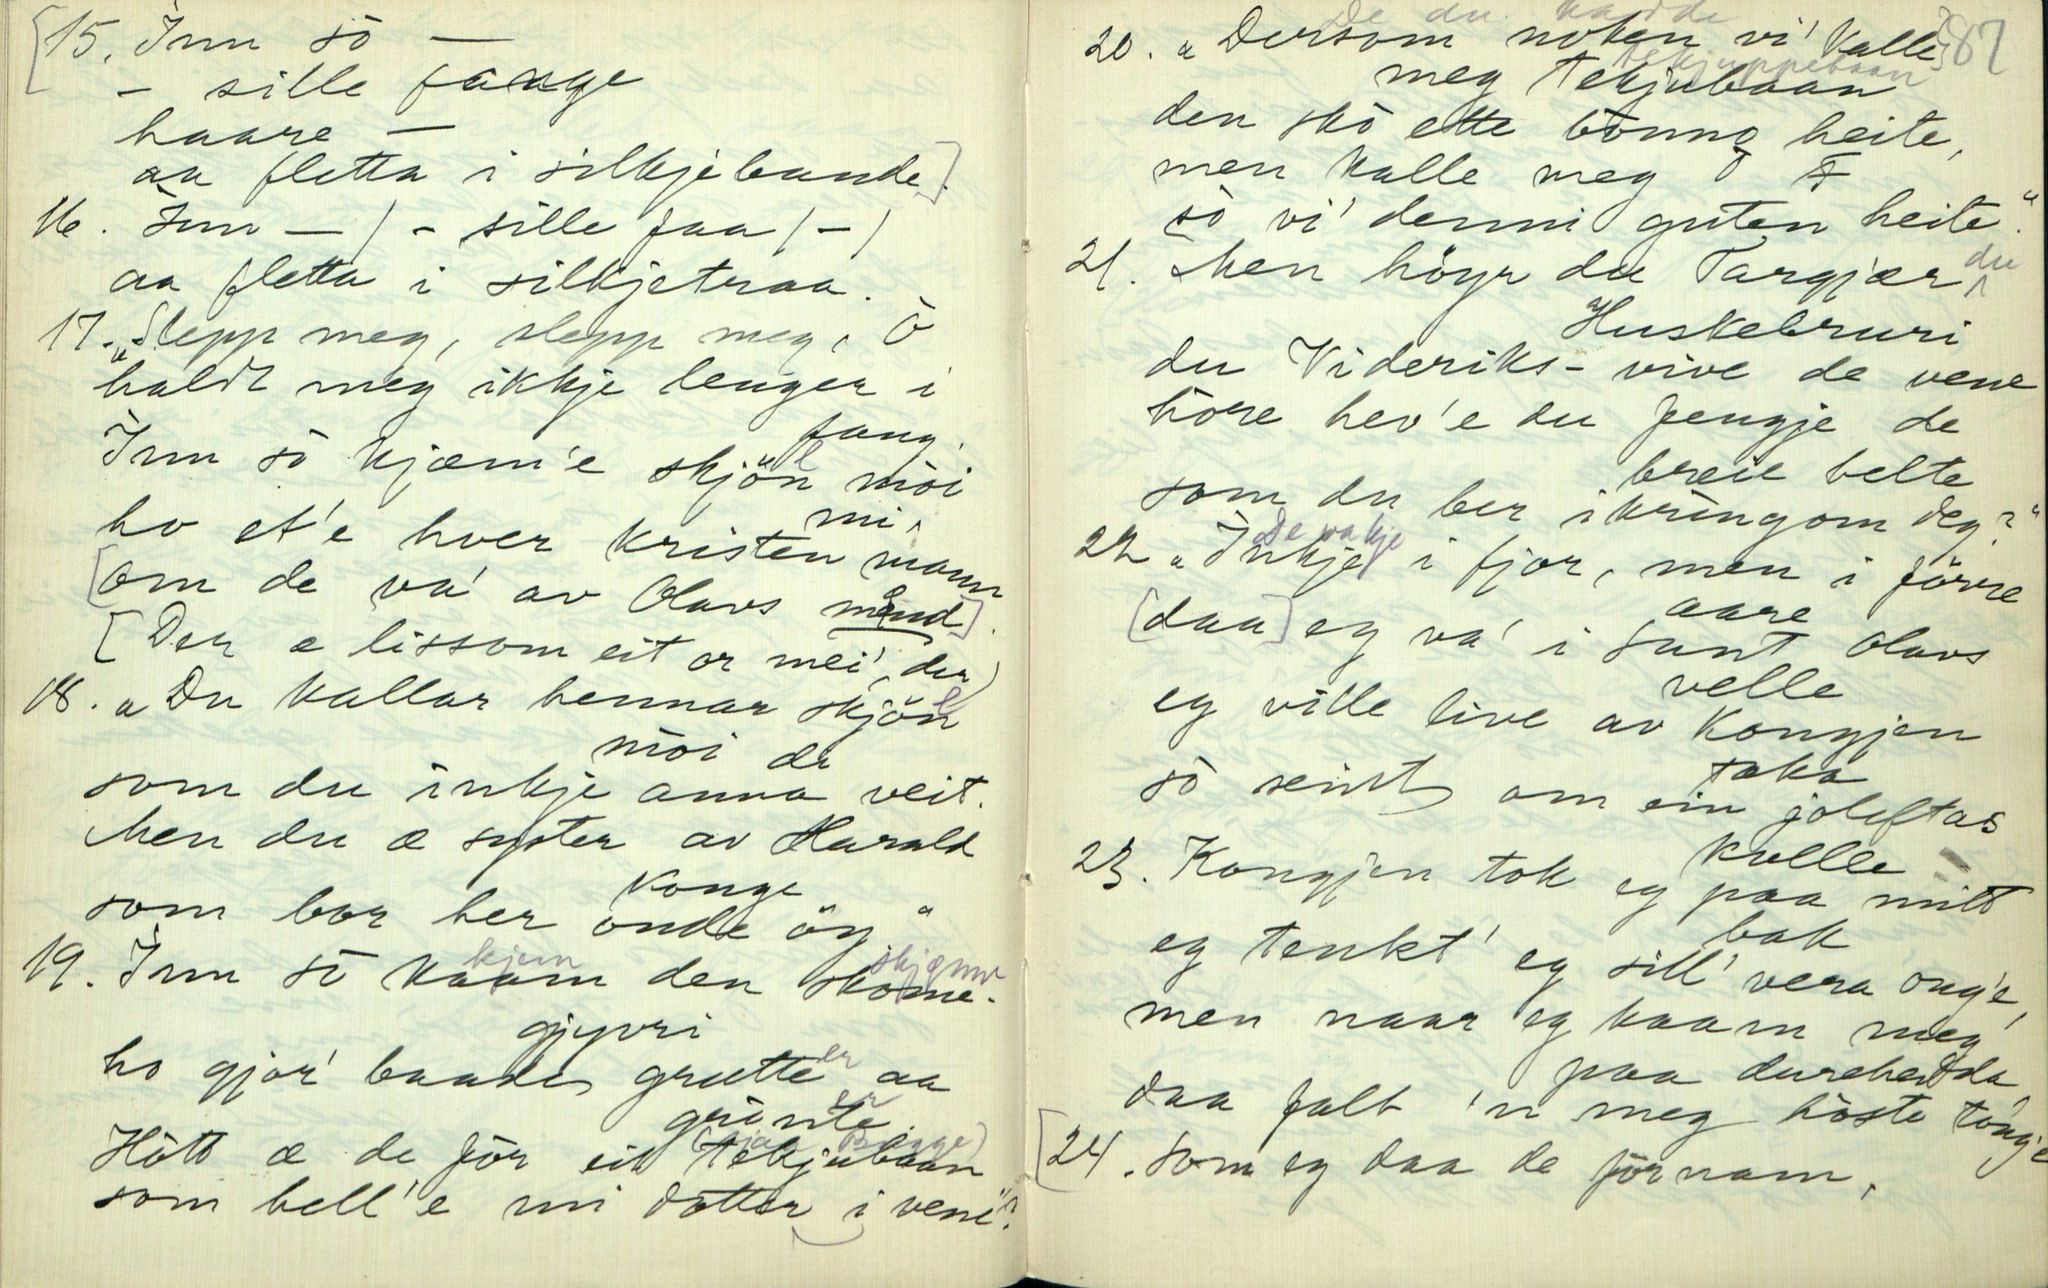 [15. Inn so —
— sille fange
haare —
aa fletta i silkjebande.]
16. Inn — / - sille faa / - /
aa fletta i silkjetraa.
17. "Slepp meg, slepp meg, Ò
haldt meg ikkje lenger i
fang.
Inn so kjæm'e skjön möi
mi,
ho et'e hver kristen mann
[om de va' av Olavs mend].
[Der æ lissom eit or mei', du)
18. "Du kallar hennar skjön
möi du
som du inkje anna veit.
Men du æ syster av Harald
konge
som bor her onde öy"
kjem skjemme
19. Inn so kaam den skome-
gjyvri
ho gjor' baade grætte er aa
grinte er
Hött æ de för eit tekjubaan
som hell'e mi dotter i vene"?
87
De du kadde
20. "Dersom noken vi' kalle
meg tekjubaan
den skò ette bonno heite,
men kalle meg
sò vi' denni guten heite."
21. Men höyr du Targjær du
Huskebruri
du Videriks- vive de vene
höre hev'e du fengje de
breie belte
som du ber ikringom deg?"
De va kje
22 "Inkje i fjor, men i förre
aare
[daa] eg va' i sant Olavs
velle
eg ville live av Kongjen
taka
sò seint om ein joleftas
kvelle
23. Kongjen tok eg paa mitt
bak
eg tenkt' eg sill' vera ong'e,
men naar eg kaam meg
paa durehedda,
daa falt 'n meg höste tongje
[24. Som eg daa de förnam,